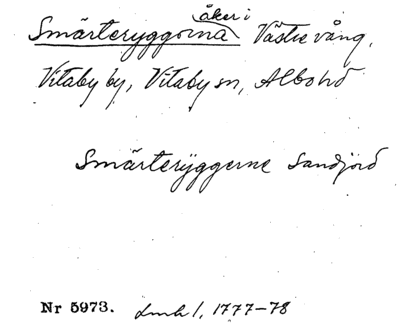 Smärteryggorna åker i Västre vång,
Vitaby by, Vitaby sn, Albo hd
Smärterÿggerne Sandjord
Nr 5973. Lmh 1, 1777-78